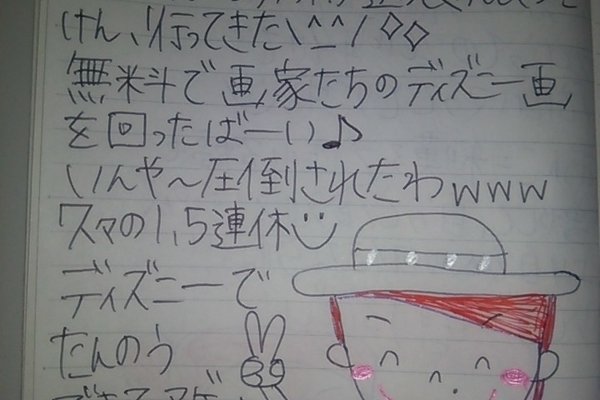 けん、行ってきた\^_^/◇◇
無料で画家たちのディズニー画
を回ったばーい♪
いんや〜圧倒されたわwww
久々の1,5連休
ディズニーで
たんのう